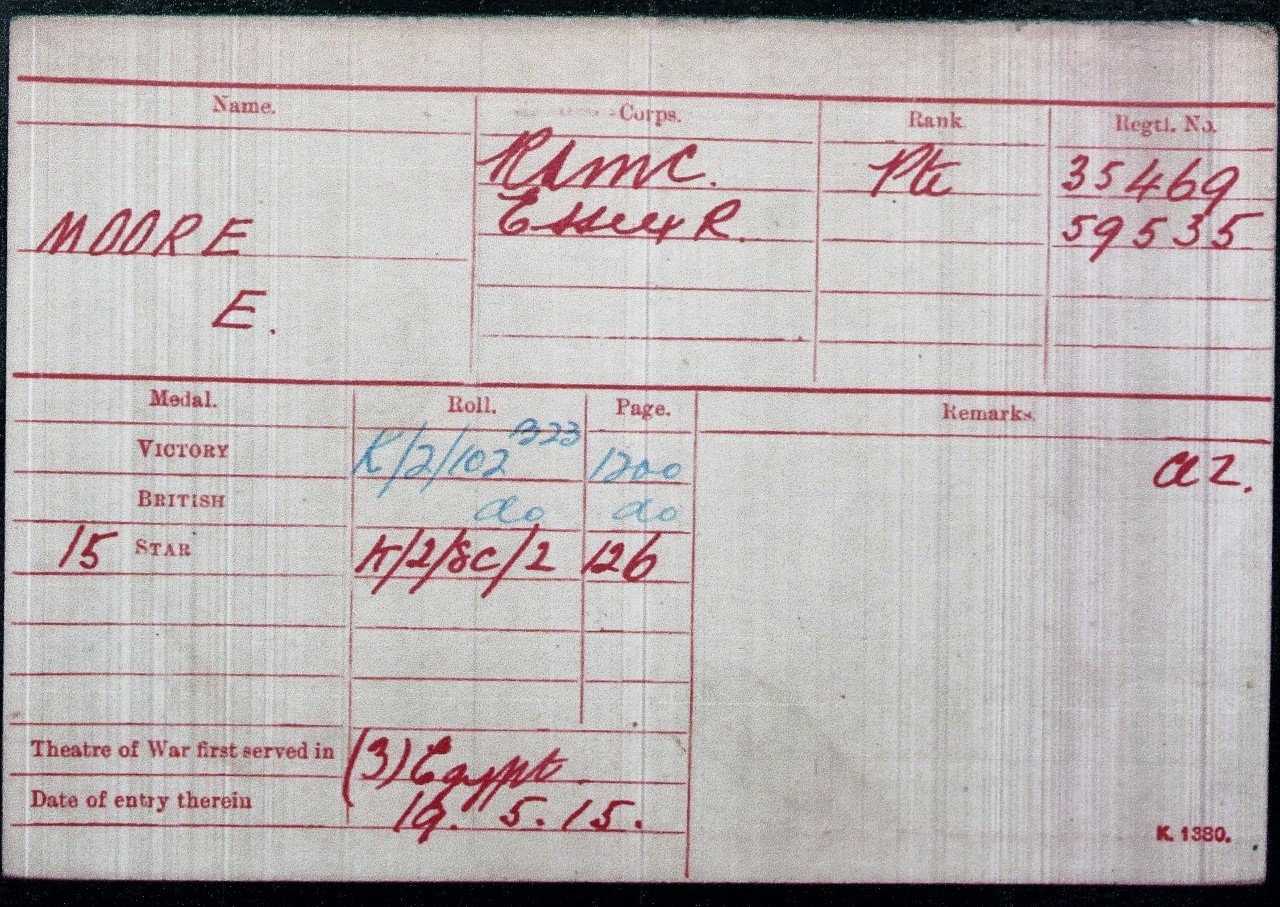 Name. Corps. Rank. Regtl. No.
RAMC. Pte 35469
MOORE Essex R. 59535
E.
Medal. Roll. Page. Remarks.
VICTORY K/2/102 B23 1200
BRITISH do do
a2.
15 STAR K/2/8C/2 126
Theatre of War first served in (3) Egypt
Date of entry therein 19.5.15.
K. 1380.